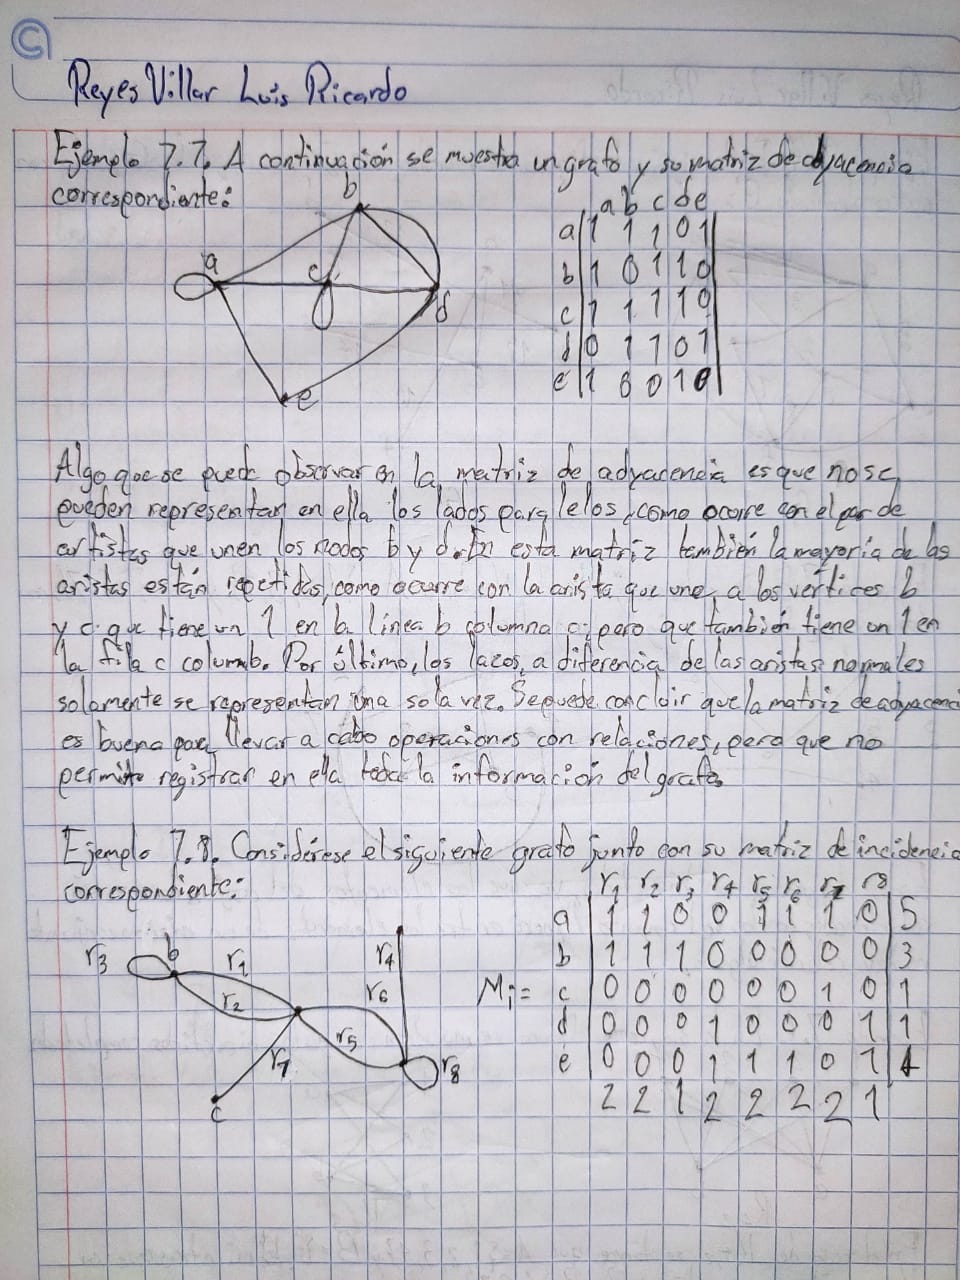 Reyes Villar Luis Ricardo
Ejemplo 7.7. A continuación se muestra un grafo y su matriz de adyacencia
correspondiente:
a b c d e
a 1 1 1 0 1
b 1 0 1 1 0
c 1 1 1 1 0
d 0 1 1 0 1
e 1 0 0 1 0
b
a
c
d
e
Algo que se puede observar en la matriz de adyacencia es que no se
pueden representan en ella los lados paralelos, como ocurre con el par de
artistas que unen los nodos b y d. En esta matriz también la mayoría de las
aristas están repetidas, como ocurre con la arista que une a los vértices b
y c: que tiene un 1 en la línea b columna c; pero que también tiene un 1 en
la fila c columb. Por último, los lazos, a diferencia de las aristas normales
solamente se representan una sola vez. Se puede concluir que la matriz de adyacenci
es buena para llevar a cabo operaciones con relaciones, pero que no
permite registrar en ella toda la información del grafo.
Ejemplo 7.8. Considérese el siguiente grafo junto con su matriz de incidencia
correspondiente:
r1 r2 r3 r4 r5 r6 r7 r8
a 1 1 0 0 1 1 1 0 5
b 1 1 1 0 0 0 0 0 3
Mi= c 0 0 0 0 0 0 1 0 1
d 0 0 0 1 0 0 0 1 1
e 0 0 0 1 1 1 0 1 4
2 2 1 2 2 2 2 1
r3
b
r1
r4
r2
r6
r5
r7
r8
c